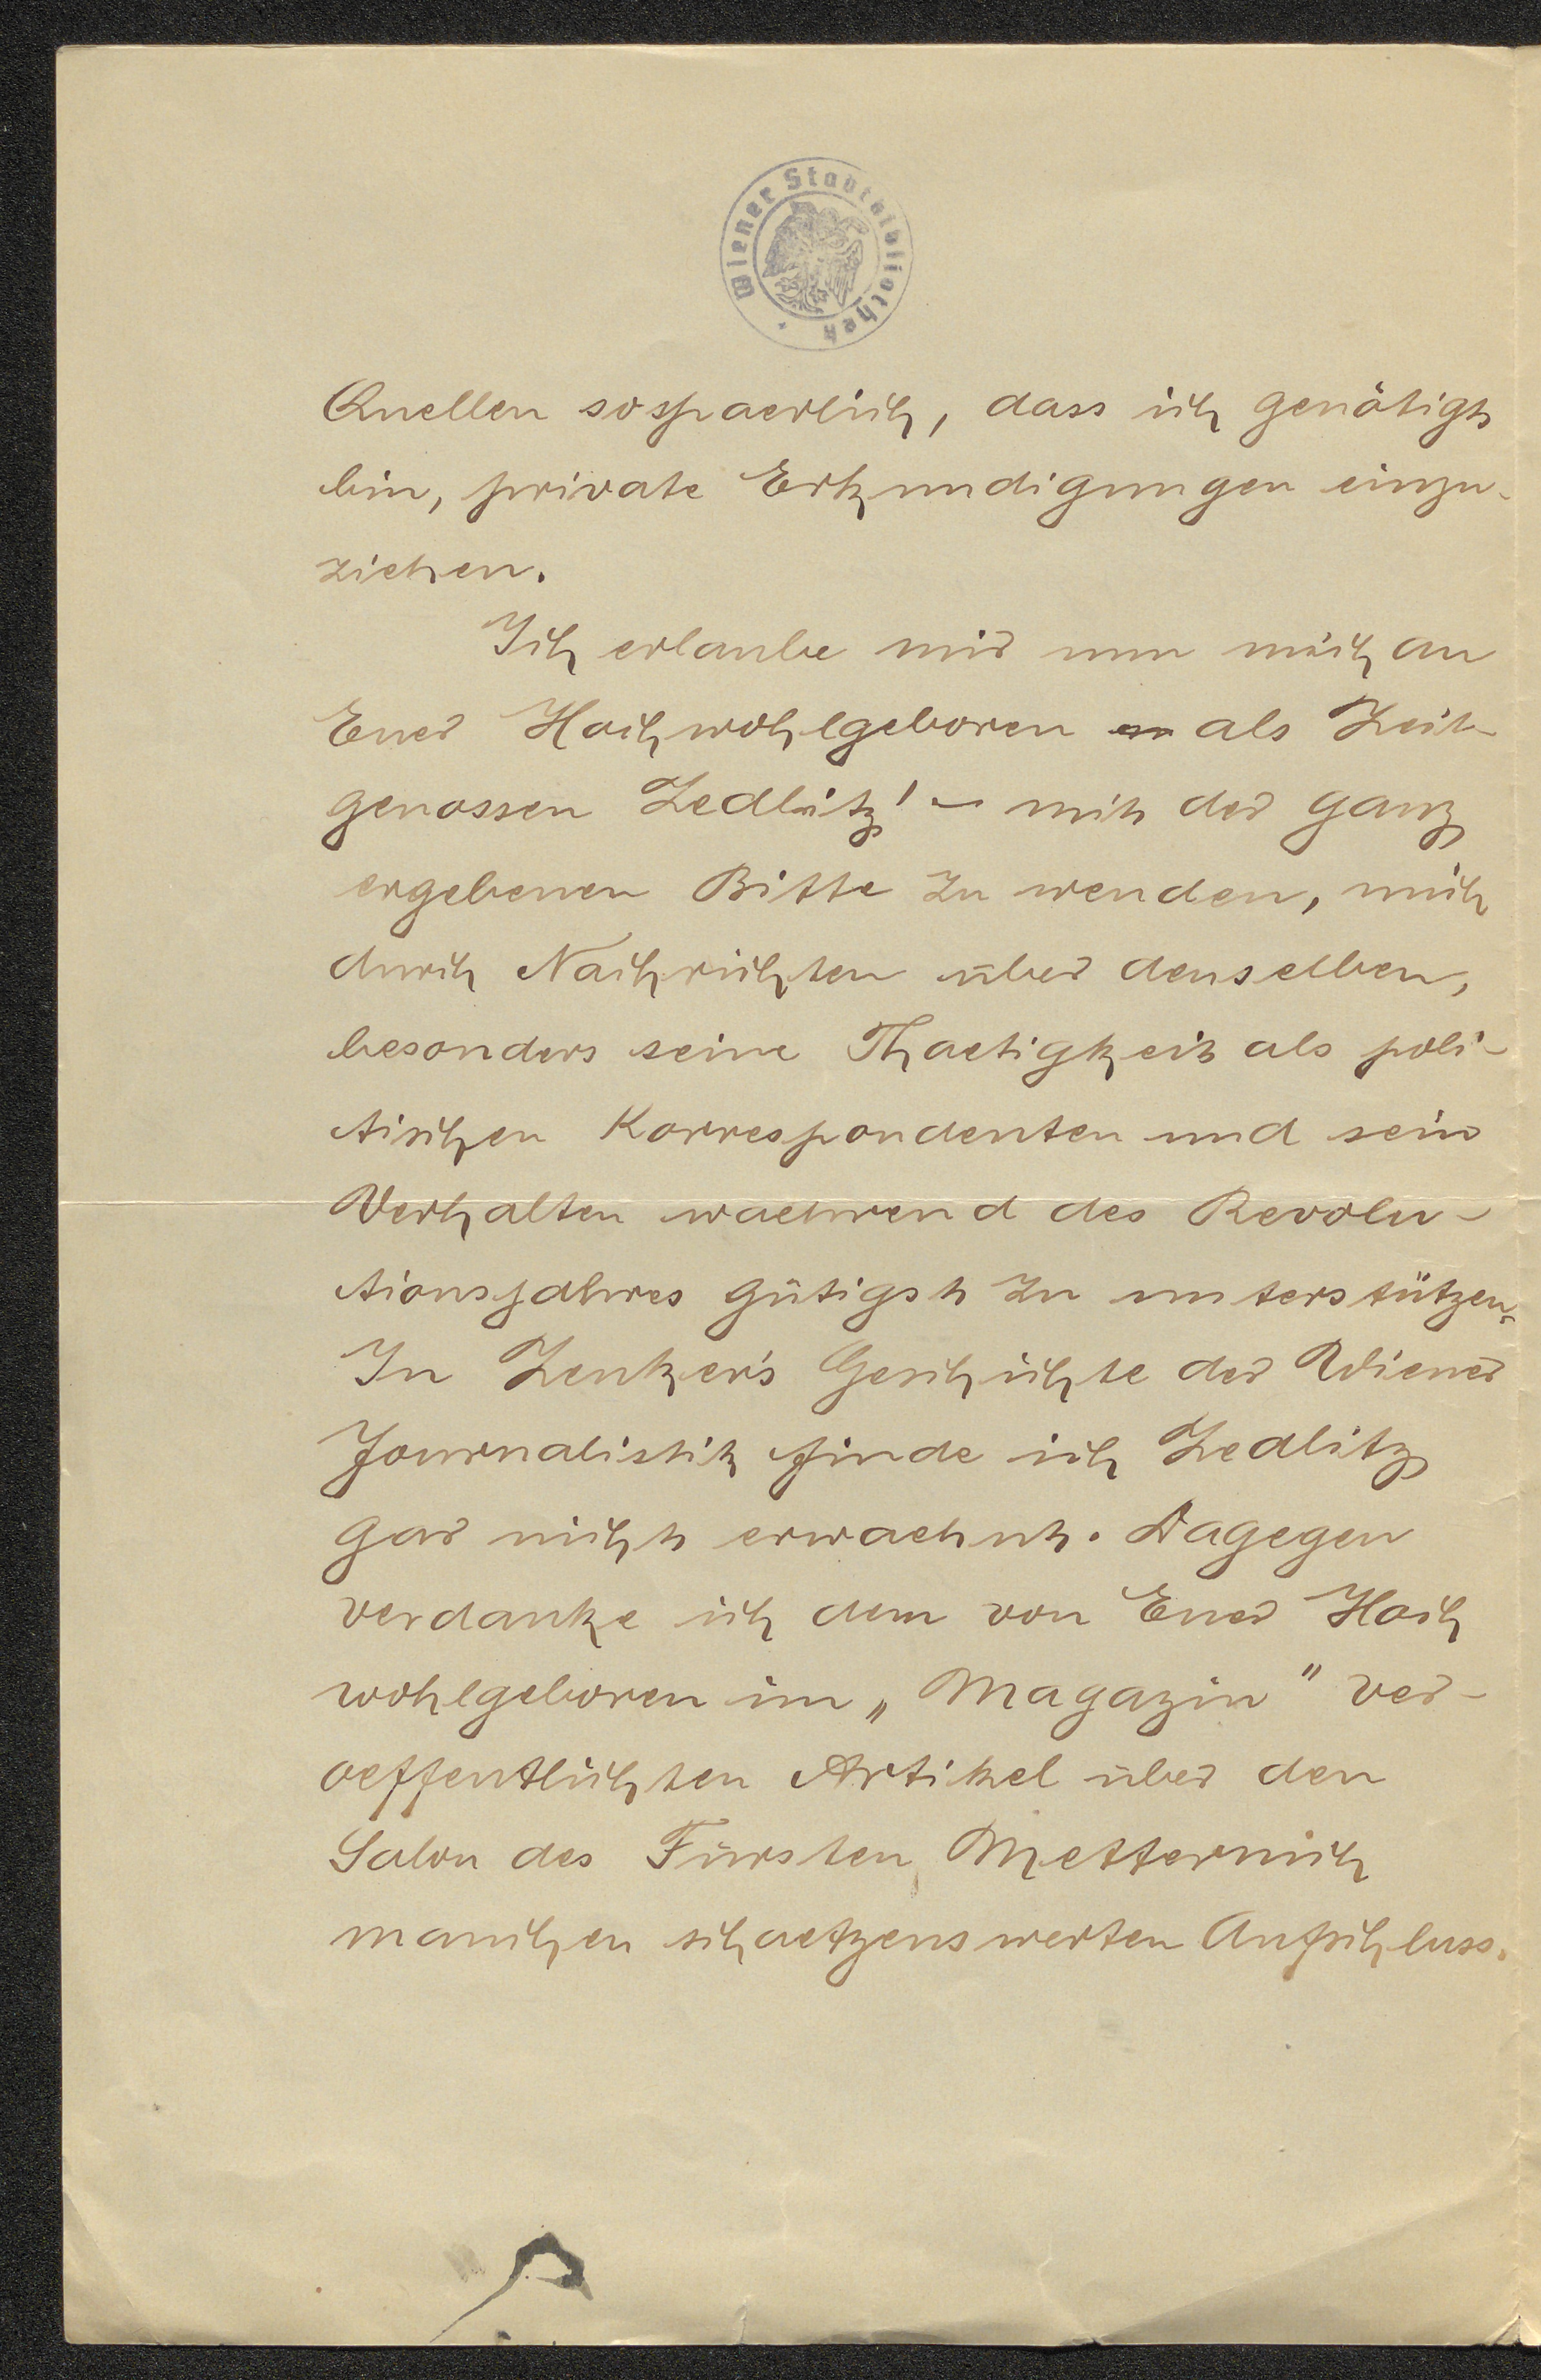 Wiener Stadtbibliothek
Quellen so spaerlich, dass ich genötigt
bin, private Erkundigungen einzu-
ziehen.
Ich erlaube mir nun mich an
Euer Hochwohlgeboren als Zeit-
genossen Zedlitz' – mit der ganz
ergebenen Bitte zu wenden, mich
durch Nachrichten über denselben,
besonders seine Thaetigkeit als poli-
tischen Korrespondenten und sein
Verhalten waehrend des Revolu-
tionsjahres gütigst zu unterstützen.
In Zenker's Geschichte der Wiener
Journalistik finde ich Zedlitz
gar nicht erwaehnt. Dagegen
verdanke ich dem von Euer Hoch
wohlgeboren im „Magazin" ver-
oeffentlichten Artikel über den
Salon des Fürsten Metternich
manchen schaetzenswerten Aufschluss.